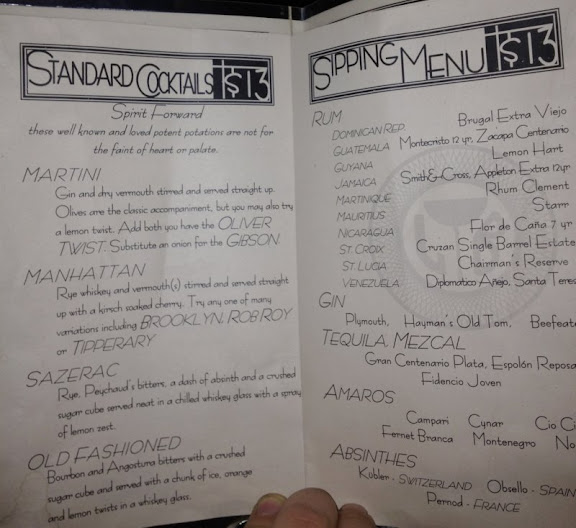 STANDARD COCKTAILS $13
Spirit Forward
these well known and loved potent potations are not for
the faint of heart or palate.
MARTINI
Gin and dry vermouth stirred and served straight up.
Olives are the classic accompaniment, but you may also try
a lemon twist. Add both you have the OLIVER
TWIST. Substitute an onion for the GIBSON.
MANHATTAN
Rye whiskey and vermouth(s) stirred and served straight
up with a kirsch soaked cherry. Try any one of many
variations including BROOKLYN, ROB ROY
or TIPPERARY
SAZERAC
Rye, Peychaud's bitters, a dash of absinth and a crushed
sugar cube served neat in a chilled whiskey glass with a spray
of lemon zest.
OLD FASHIONED
Bourbon and Angostura bitters with a crushed
sugar cube and served with a chunk of ice, orange
and lemon twists in a whiskey glass.
SIPPING MENU $13
RUM
DOMINICAN REP. Brugal Extra Viejo
GUATEMALA Montecristo 12 yr, Zacapa Centenario
GUYANA Lemon Hart
JAMAICA Smith & Cross, Appleton Extra 12yr
MARTINIQUE Rhum Clement
MAURITIUS Starr
NICARAGUA Flor de Caña 7 yr
ST. CROIX Cruzan Single Barrel Estate
ST. LUCIA Chairman's Reserve
VENEZUELA Diplomatico Añejo, Santa Teres
GIN
Plymouth, Hayman's Old Tom, Beefeate
TEQUILA, MEZCAL
Gran Centenario Plata, Espolón Reposa
Fidencio Joven
AMAROS
Campari Cynar Cio Ci
Fernet Branca Montenegro No
ABSINTHES
Kubler - SWITZERLAND Obsello - SPAIN
Pernod - FRANCE